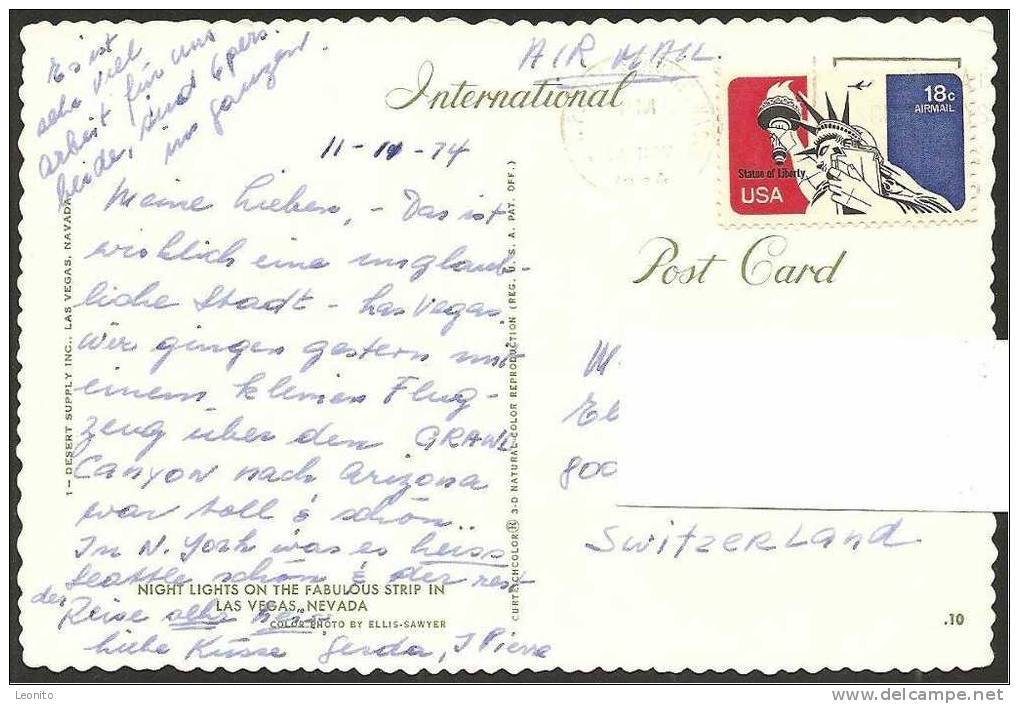 Es ist
sehr viel
Arbeit für uns
beide, sind 6 pers.
im ganzen.
AIR MAIL
International
11-10-74
18c
AIRMAIL
Statue of Liberty
USA
Post Card
Meine Lieben, - Das ist
wirklich eine unglaub-
liche Stadt - Las Vegas.
Wir gingen gestern mit
einem kleinen Flug-
zeug über den GRAND
Canyon nach Arizona
war toll & schön..
In N. York was es heiss
Seattle schön & der rest
der Reise sehr
liebe Küsse Gerda, J Pierre
M
El
800
Switzerland
1-DESERT SUPPLY INC., LAS VEGAS, NAVADA
CURTEICHCOLOR® 3-D NATURAL COLOR REPRODUCTION (REG. U. S. A. PAT. OFF.)
NIGHT LIGHTS ON THE FABULOUS STRIP IN
LAS VEGAS, NEVADA
COLOR PHOTO BY ELLIS-SAWYER
.10
Leonito
www.delcampe.net